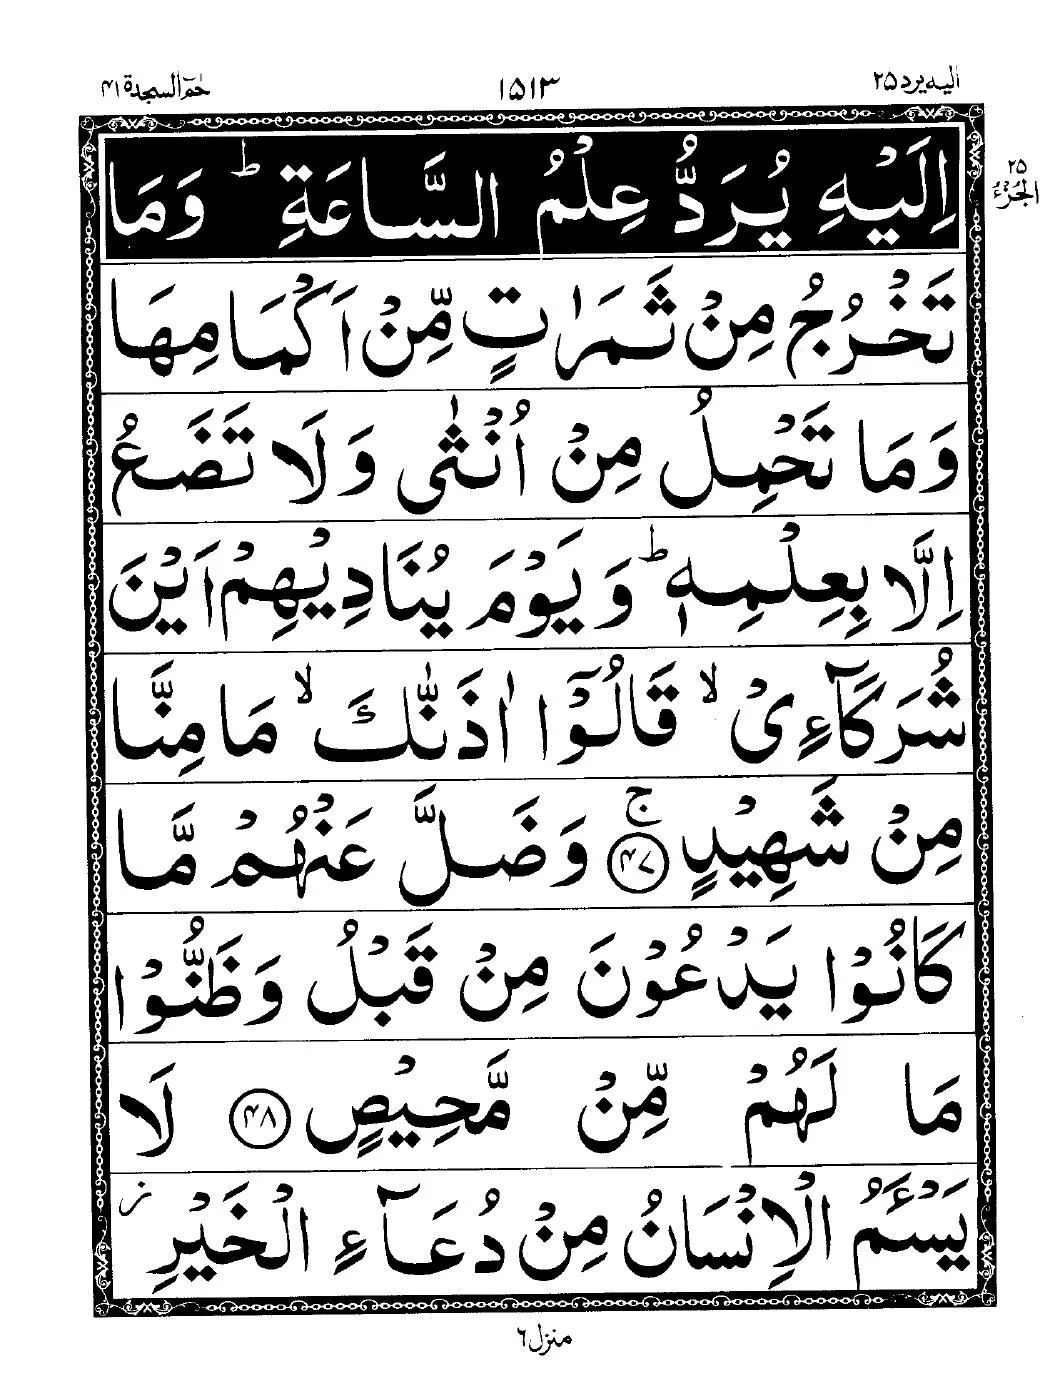 الیہ یرد ۲۵ ۱۵۱۳ حٰمٓ السجدة ۴۱
۲۵
الجزء
اِلَيْهِ يُرَدُّ عِلْمُ السَّاعَةِ ؕ وَمَا
تَخْرُجُ مِنْ ثَمَرٰتٍ مِّنْ اَكْمَامِهَا
وَمَا تَحْمِلُ مِنْ اُنْثٰى وَلَا تَضَعُ
اِلَّا بِعِلْمِهٖ ؕ وَيَوْمَ يُنَادِيْهِمْ اَيْنَ
شُرَكَآءِيْ ۙ قَالُوْٓا اٰذَنّٰكَ ۙ مَا مِنَّا
مِنْ شَهِيْدٍ ۚ ﴿۴۷﴾ وَضَلَّ عَنْهُمْ مَّا
كَانُوْا يَدْعُوْنَ مِنْ قَبْلُ وَظَنُّوْا
مَا لَهُمْ مِّنْ مَّحِيْصٍ ﴿۴۸﴾ لَا
يَسْـَٔمُ الْاِنْسَانُ مِنْ دُعَآءِ الْخَيْرِ ز
منزل ۶